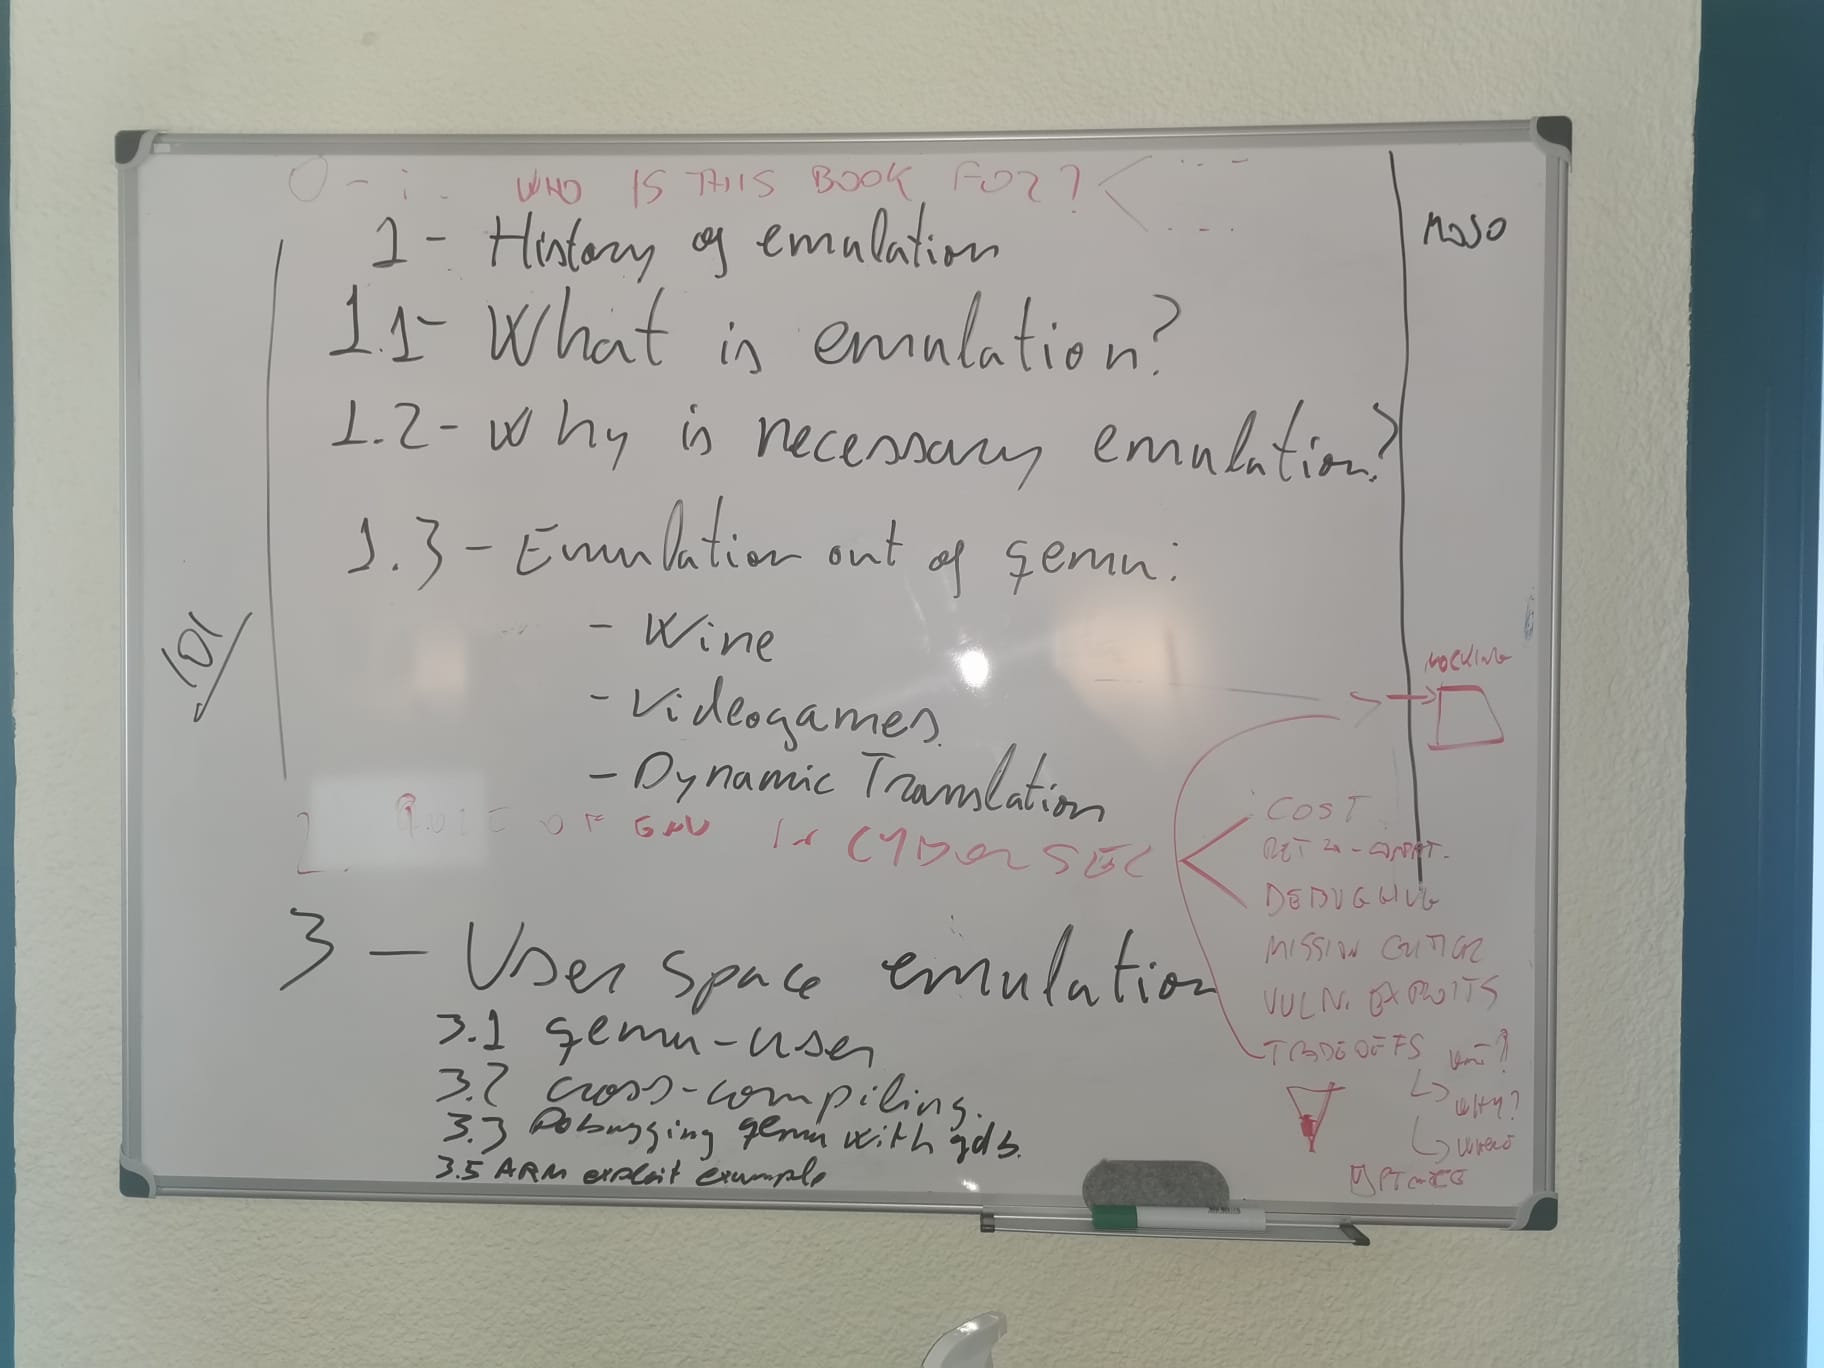 0 - i. WHO IS THIS BOOK FOR?
1 - History of emulation
1.1- What is emulation?
1.2- Why is necessary emulation?
1.3 - Emulation out of qemu:
- Wine
- Videogames
- Dynamic Translation
101
2. OF EMU IN CYBERSEC
3 - User space emulation
3.1 qemu-user
3.2 cross-compiling.
3.3 Debugging qemu with gdb.
3.5 ARM exploit example
MOCKING
COST
DEBUGGING
MISSION CRITICAL
VULN. EXPLOITS
TRADEOFFS
WHY?